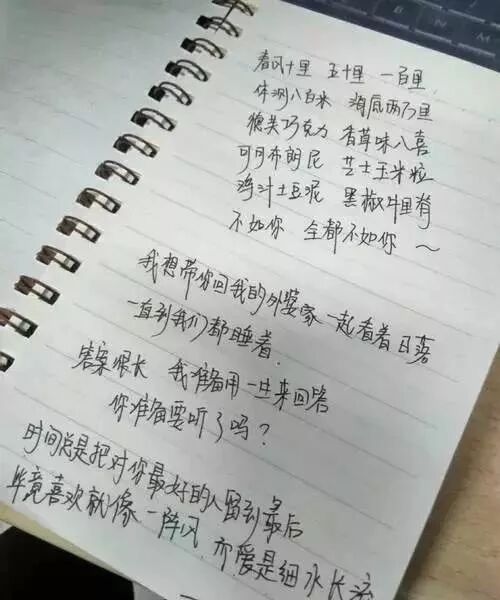 春风十里 五十里 一百里
体测八百米 海底两万里
德芙巧克力 香草味八喜
可可布朗尼 芝士玉米粒
鸡汁土豆泥 黑椒牛里脊
不如你 全都不如你 ~
我想带你回我的外婆家 一起看着日落
一直到我们都睡着
答案很长 我准备用一生来回答
你准备要听了吗？
时间总是把对你最好的人留到最后
毕竟喜欢就像一阵风 而爱是细水长流